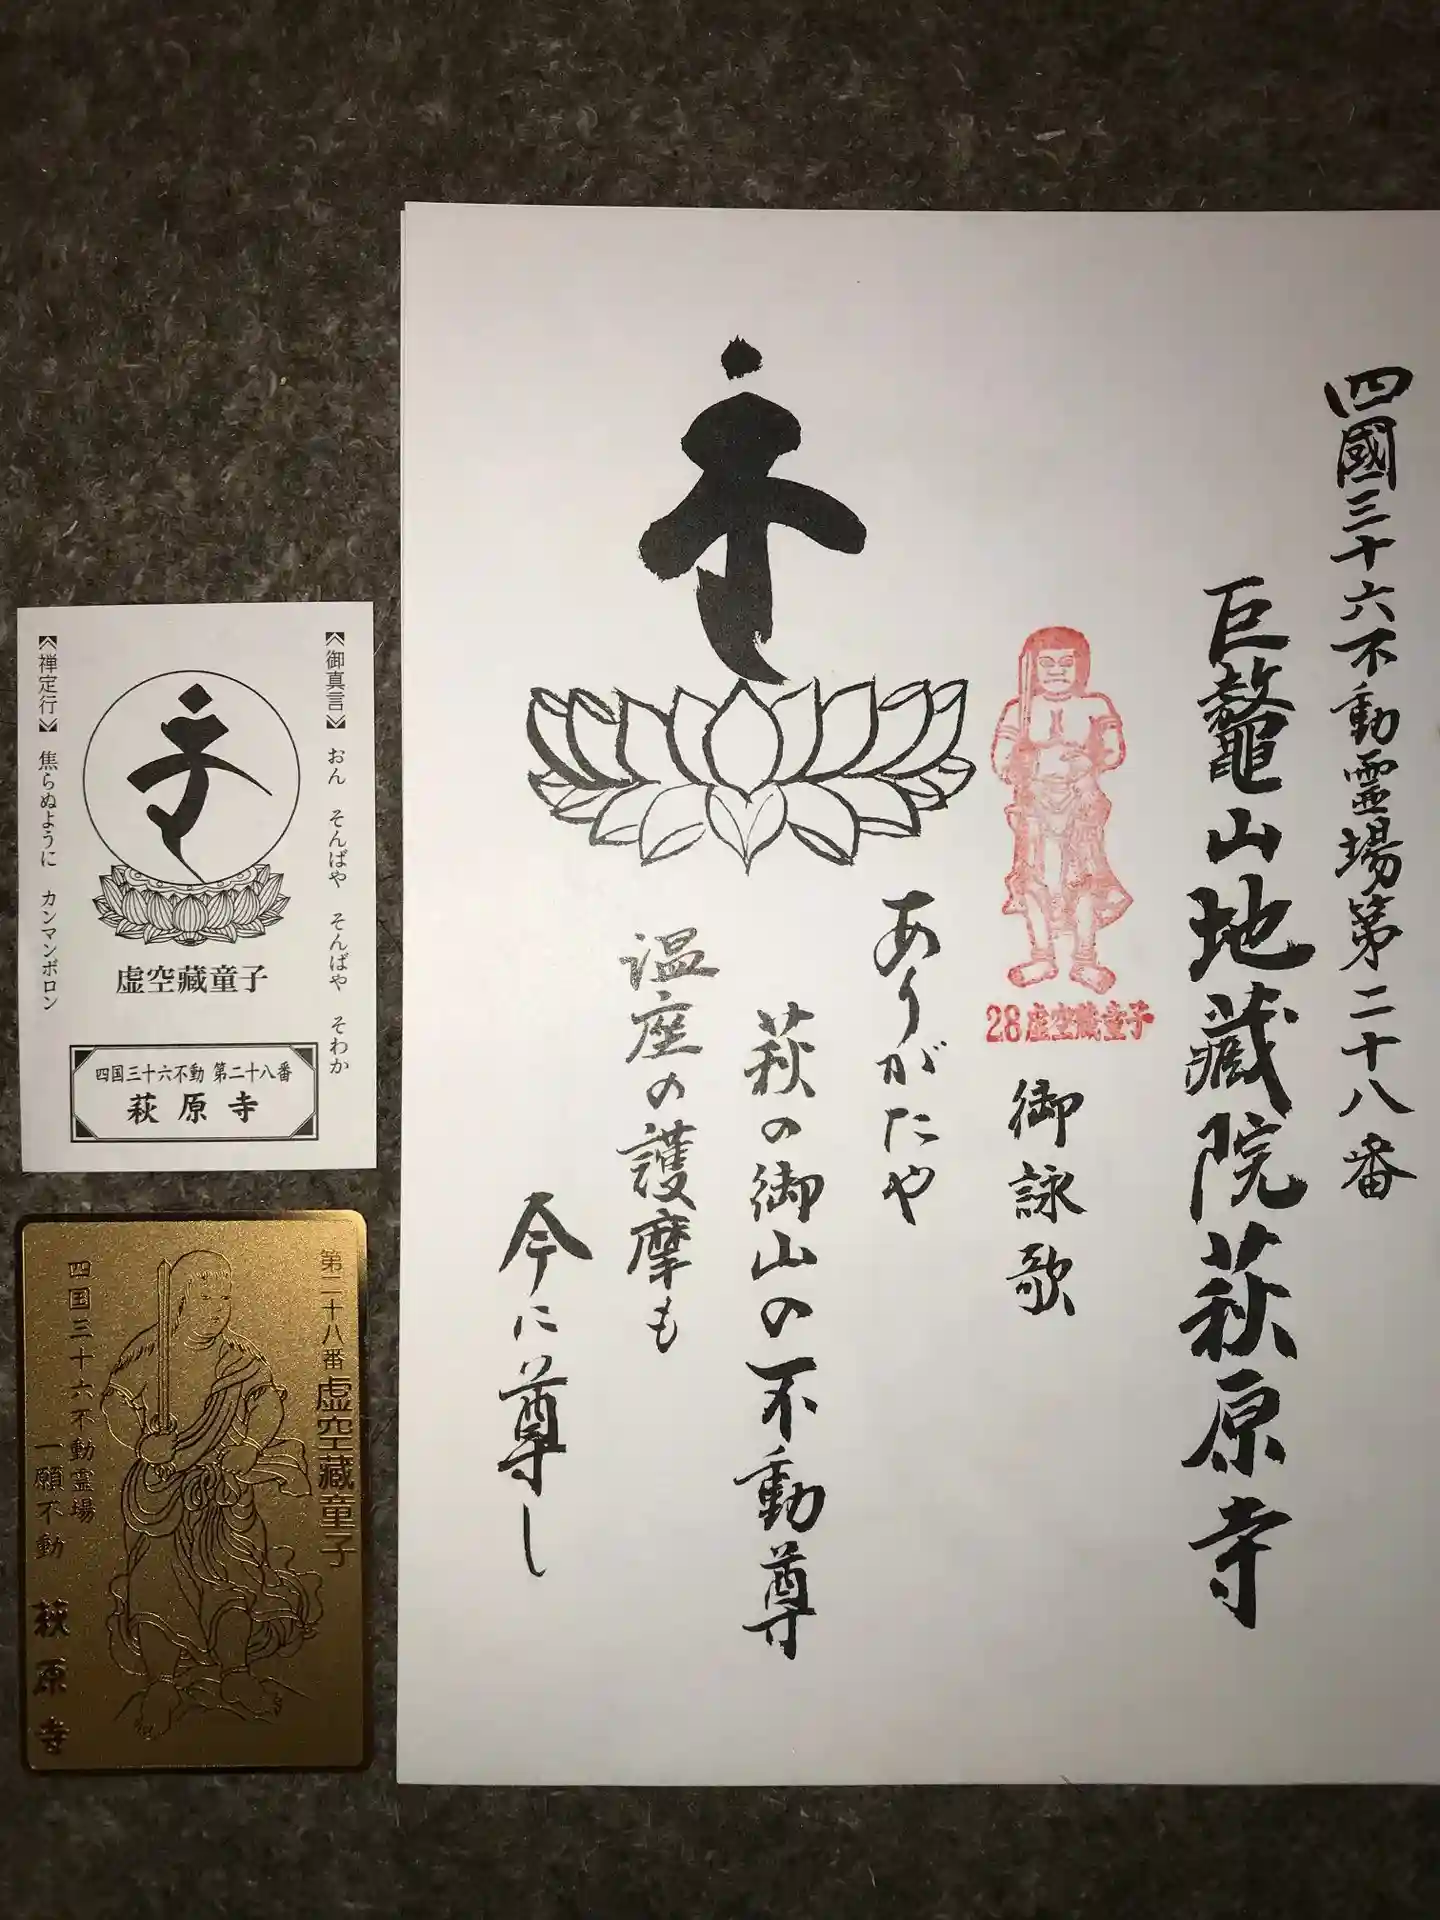 四國三十六不動霊場第二十八番
巨鼇山地藏院萩原寺
28虚空藏童子
御詠歌
ありがたや
萩の御山の不動尊
温座の護摩も
今に尊し
《御真言》 おん そんばや そんばや そわか
《禅定行》 焦らぬように カンマンボロン
虚空藏童子
四国三十六不動 第二十八番
萩原寺
第二十八番 虚空藏童子
四国三十六不動霊場
一願不動 萩原寺